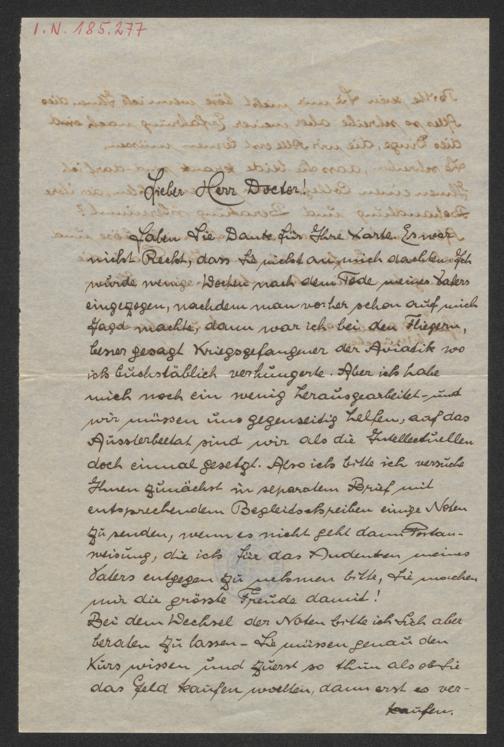 I.N. 185.277
Lieber Herr Doctor!
Haben Sie Dank für Ihre Karte. Es war
nicht Recht, dass Sie nicht an mich dachten. Ich
wurde wenige Wochen nach dem Tode meines Vaters
eingezogen, nachdem man vorher schon auf mich
Jagd machte, dann war ich bei den Fliegern,
besser gesagt Kriegsgefangner der Aviatik wo
ich buchstäblich verhungerte. Aber ich habe
mich noch ein wenig herausgearbeitet – und
wir müssen uns gegenseitig helfen, auf das
Aussterbeetat sind wir als die Intellectuellen
doch einmal gesetzt. Also ich bitte ich versuche
Ihnen zunächst in separatem Brief mit
entsprechendem Begleitschreiben einige Noten
zu senden, wenn es nicht geht dann Postan-
weisung, die ich für das Andenken meines
Vaters entgegen zu nehmen bitte, Sie machen
mir die grösste Freude damit!
Bei dem Wechsel der Noten bitte ich Sich aber
beraten zu lassen – Sie müssen genau den
Kurs wissen und zuerst so thun als ob Sie
das Geld kaufen wollten, dann erst es ver-
kaufen.